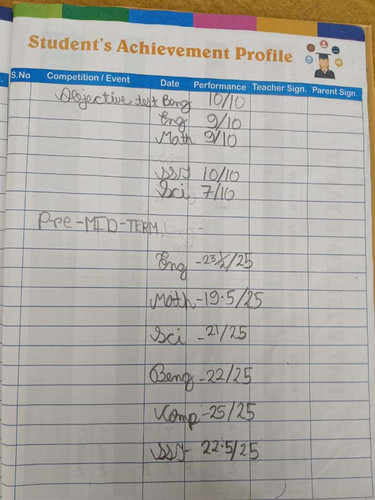 Student's Achievement Profile
S.No Competition / Event Date Performance Teacher Sign. Parent Sign.
Objective test Beng 10/10
Eng 9/10
Math 9/10
SST 10/10
Sci 7/10
Pre-MID-TERM
Eng -23½/25
Math -19.5/25
Sci -21/25
Beng -22/25
Comp -25/25
SST- 22.5/25